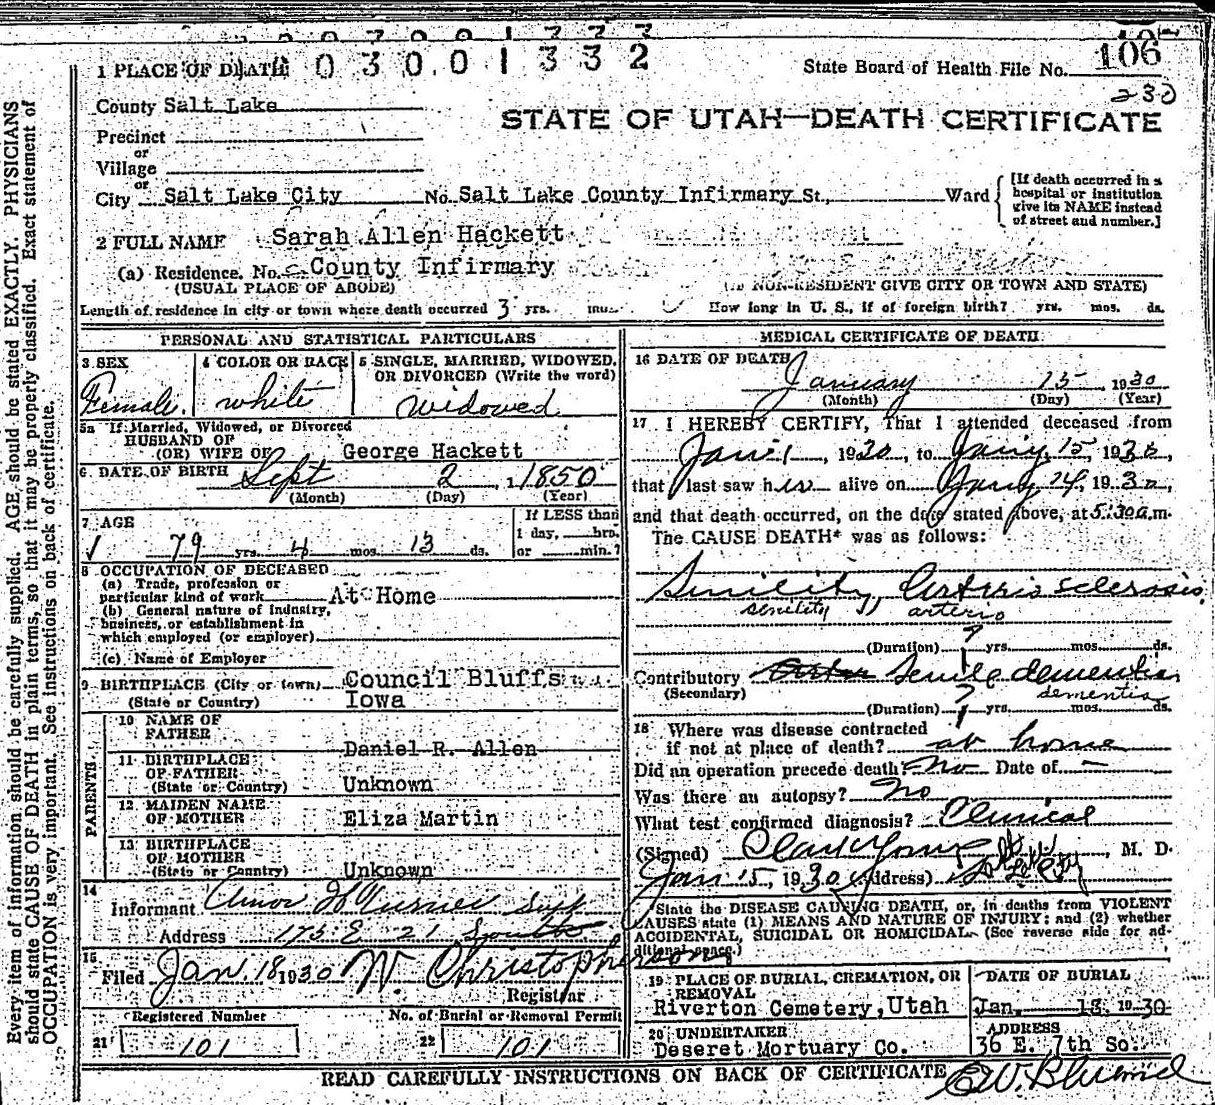 1 PLACE OF DEATH 0 3 0 0 1 3 3 2
State Board of Health File No. 106
230
County Salt Lake
STATE OF UTAH—DEATH CERTIFICATE
Precinct
or
Village
or
City Salt Lake City No. Salt Lake County Infirmary St., Ward
[If death occurred in a
hospital or institution
give its NAME instead
of street and number.]
2 FULL NAME Sarah Allen Hackett
(a) Residence. No. County Infirmary
(USUAL PLACE OF ABODE) (IF NON-RESIDENT GIVE CITY OR TOWN AND STATE)
Length of residence in city or town where death occurred 3 yrs. mos. How long in U. S., if of foreign birth? yrs. mos. ds.
PERSONAL AND STATISTICAL PARTICULARS
3 SEX 4 COLOR OR RACE 5 SINGLE, MARRIED, WIDOWED,
OR DIVORCED (Write the word)
Female. white widowed
5a If Married, Widowed, or Divorced
HUSBAND OF
(OR) WIFE OF George Hackett
6 DATE OF BIRTH Sept 2, 1850
(Month) (Day) (Year)
7 AGE If LESS than
1 day, hrs.
79 yrs. 4 mos. 13 ds. or min.?
8 OCCUPATION OF DECEASED
(a) Trade, profession or
particular kind of work At Home
(b) General nature of industry,
business, or establishment in
which employed (or employer)
(c) Name of Employer
9 BIRTHPLACE (City or town) Council Bluffs
(State or Country) Iowa
PARENTS
10 NAME OF
FATHER Daniel R. Allen
11 BIRTHPLACE
OF FATHER
(State or Country) Unknown
12 MAIDEN NAME
OF MOTHER Eliza Martin
13 BIRTHPLACE
OF MOTHER
(State or Country) Unknown
14
Informant Supt
Address 175 E 21 South
15
Filed Jan. 18 1930 W. Christopherson
Registrar
Registered Number No. of Burial or Removal Permit
21 101 22 101
MEDICAL CERTIFICATE OF DEATH
16 DATE OF DEATH
January 15, 1930
(Month) (Day) (Year)
17 I HEREBY CERTIFY, That I attended deceased from
Jan 1, 1930, to Jany. 15, 1930,
that I last saw her alive on Jany 14, 1930,
and that death occurred, on the date stated above, at 5:30 a.m.
The CAUSE DEATH* was as follows:
Senility, Arterio sclerosis,
senility arterio
(Duration) ? yrs. mos. ds.
Contributory Senile dementia
(Secondary) dementia
(Duration) ? yrs. mos. ds.
18 Where was disease contracted
if not at place of death? at home
Did an operation precede death? No Date of —
Was there an autopsy? No
What test confirmed diagnosis? Clinical
(Signed) Clark Young, M. D.
Jan 15, 1930 (Address) Salt Lake City
*State the DISEASE CAUSING DEATH, or, in deaths from VIOLENT
CAUSES state (1) MEANS AND NATURE OF INJURY; and (2) whether
ACCIDENTAL, SUICIDAL OR HOMICIDAL. (See reverse side for ad-
ditional space.)
19 PLACE OF BURIAL, CREMATION, OR DATE OF BURIAL
REMOVAL
Riverton Cemetery, Utah Jan. 18, 1930
20 UNDERTAKER ADDRESS
Deseret Mortuary Co. 36 E. 7th So.
READ CAREFULLY INSTRUCTIONS ON BACK OF CERTIFICATE
Every item of information should be carefully supplied. AGE should be stated EXACTLY. PHYSICIANS
should state CAUSE OF DEATH in plain terms, so that it may be properly classified. Exact statement of
OCCUPATION is very important. See instructions on back of certificate.